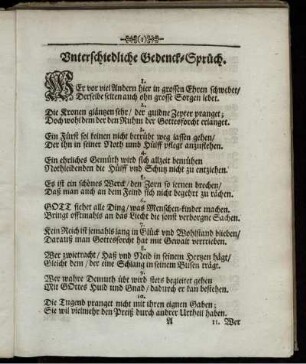 (1)
Unterschiedliche Gedenck-Sprüch.
1.
WEr vor viel Andern hier in grossen Ehren schwebet/
Derselbe selten auch ohn grosse Sorgen lebet.
2.
Die Kronen gläntzen sehr/ der guldne Zepter pranget;
Doch wohl dem der den Ruhm der Gottesforcht erlanget.
3.
Ein Fürst sol keinen nicht betrübt weg lassen gehen/
Der ihn in seiner Noth umb Hülff pflegt anzustehen.
4.
Ein ehrliches Gemüth wird sich allzeit bemühen
Nothleidenden die Hülff und Schutz nicht zu entziehen.
5.
Es ist ein schönes Werck/ den Zorn so lernen brechen/
Daß man auch an dem Feind sich nicht begehrt zu rächen.
6.
GOTT siehet alle Ding/ was Menschen-Kinder machen.
Bringt offtmahls an das Liecht die sonst verborgne Sachen.
7.
Kein Reich ist jemahls lang in Glück und Wohlstand blieben/
Darauß man Gottesforcht hat mit Gewalt vertrieben.
8.
Wer zwietracht/ Haß und Neid in seinem Hertzen hägt/
Gleicht dem/ der eine Schlang in seinem Busen trägt.
9.
Wer wahre Demuth übt wird stets begleitet gehen
Mit GOttes Huld und Gnad/ dadurch er kan bestehen.
10.
Die Tugend pranget nicht mit ihren eignen Gaben;
Sie wil vielmehr den Preiß durch andrer Urtheil haben.
A
11. Wer